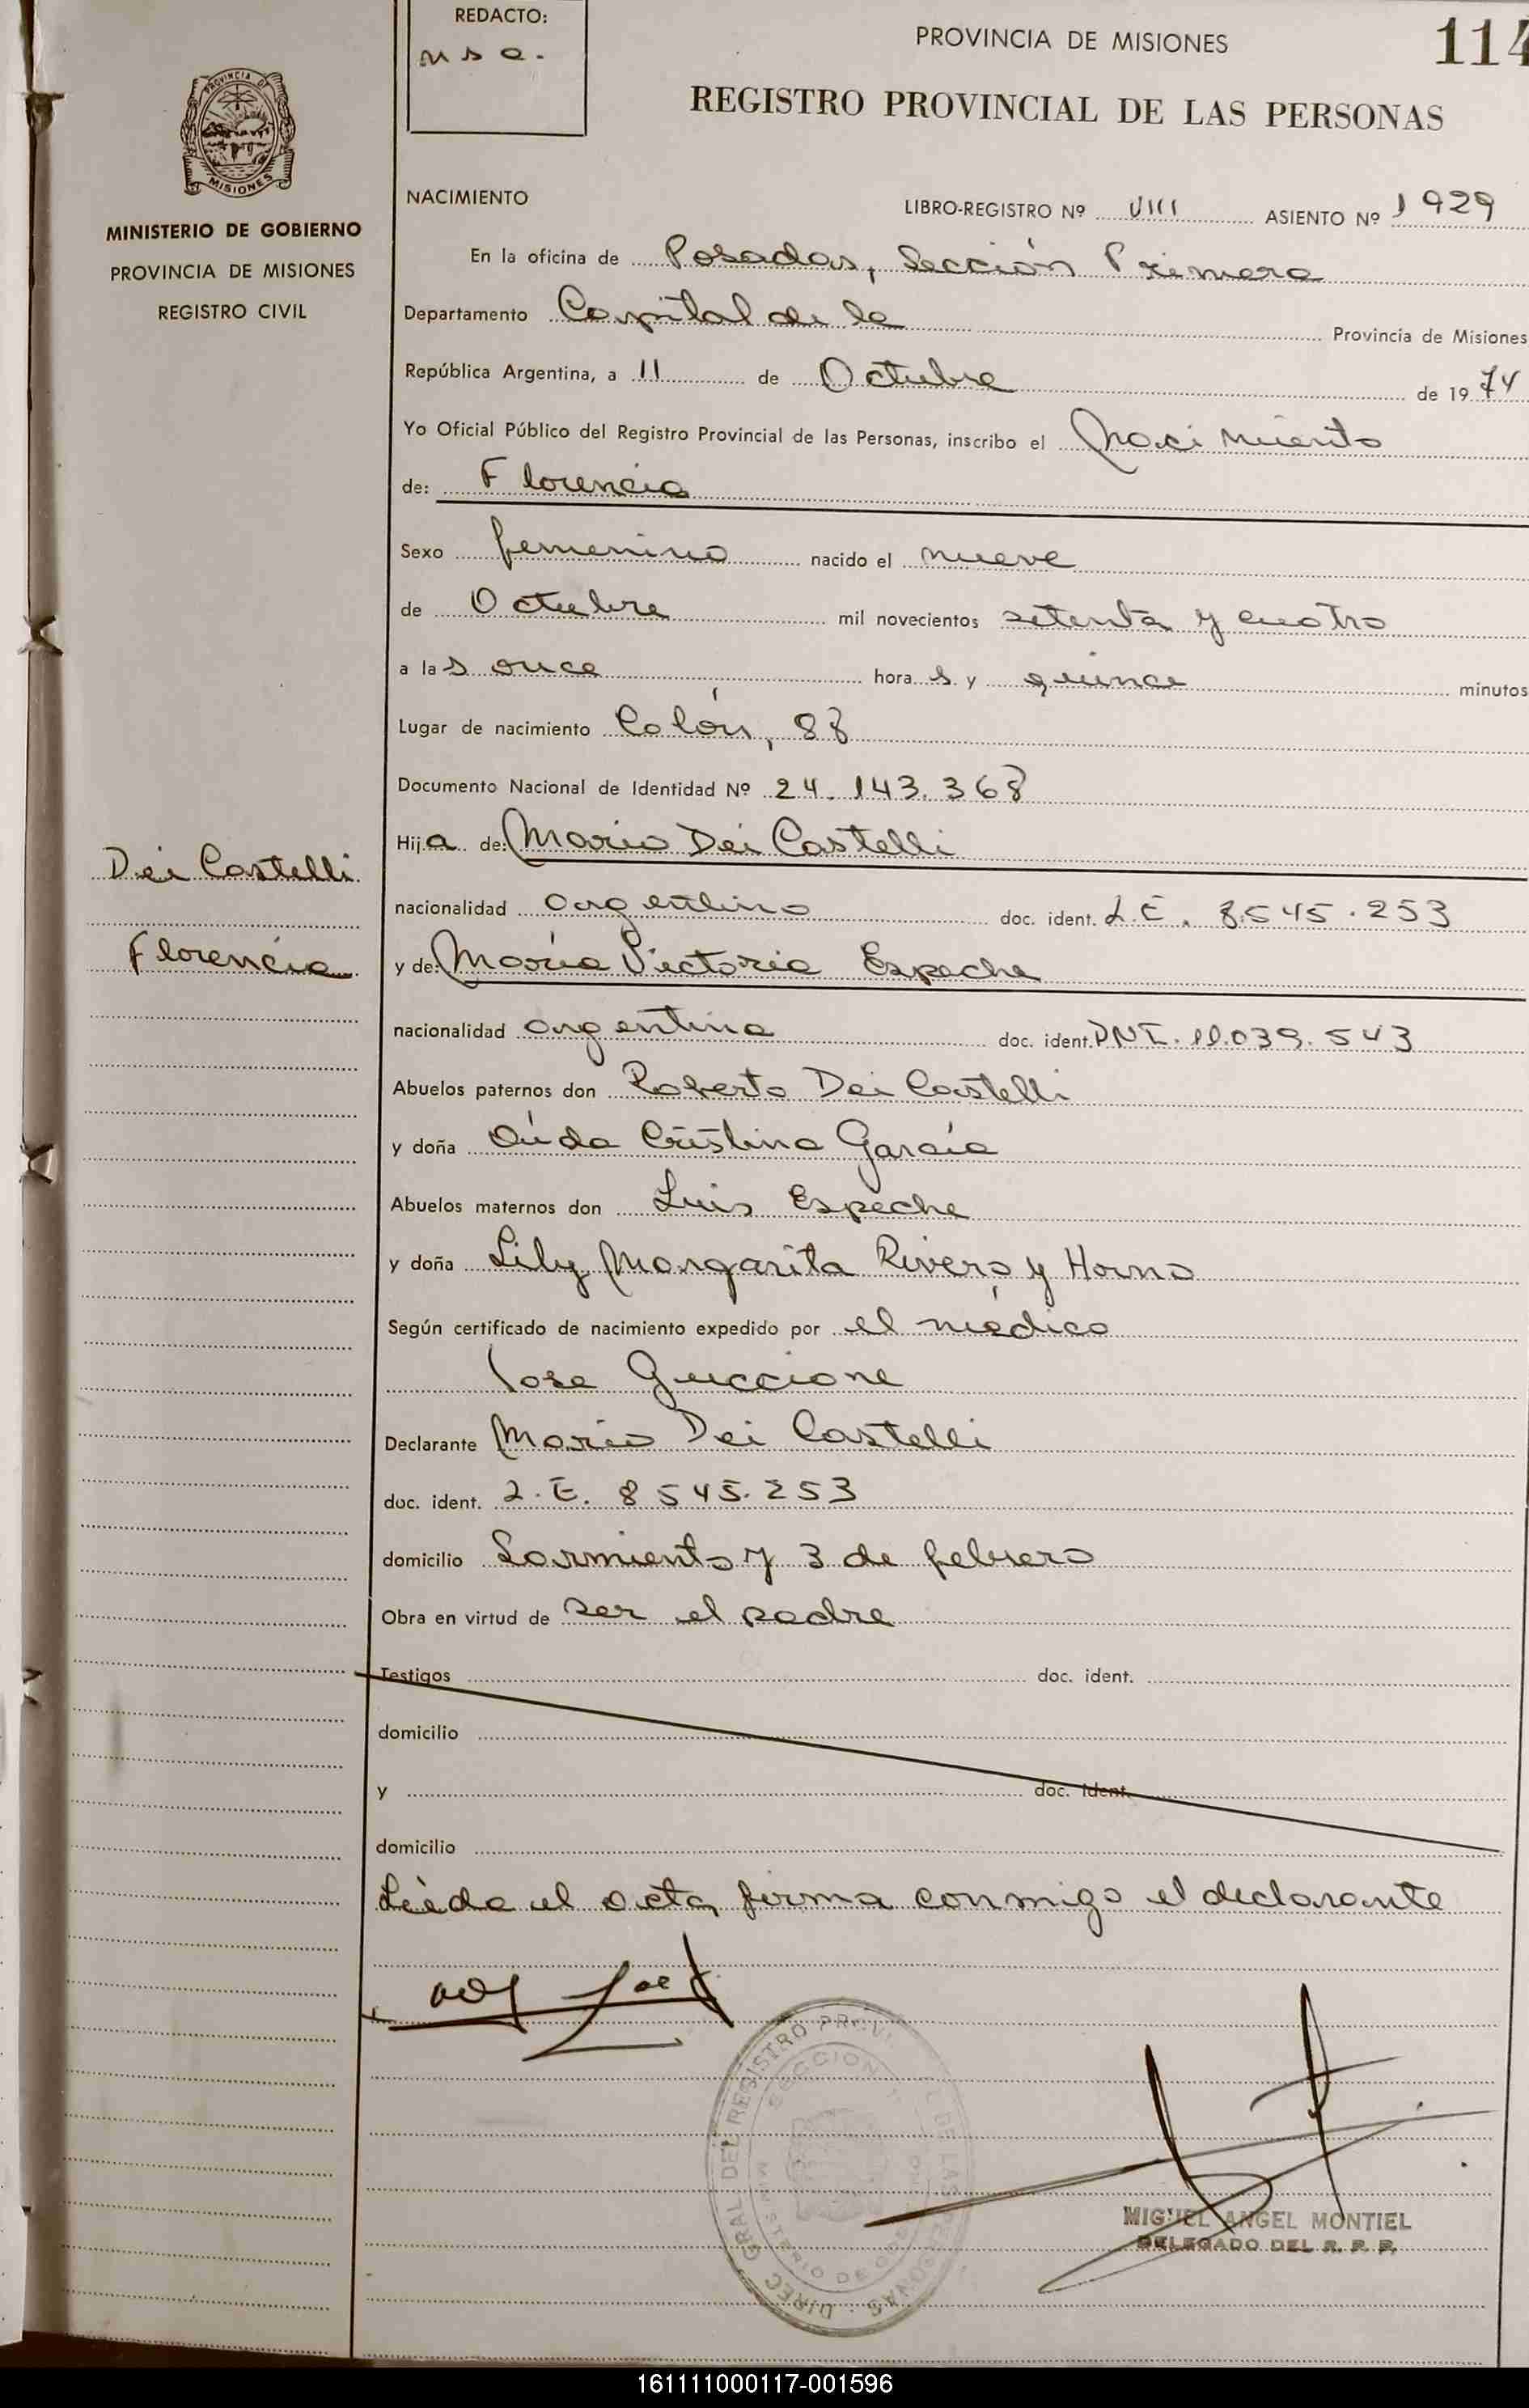 REDACTO:
PROVINCIA DE MISIONES
114
REGISTRO PROVINCIAL DE LAS PERSONAS
PROVINCIA DE
MISIONES
MINISTERIO DE GOBIERNO
PROVINCIA DE MISIONES
REGISTRO CIVIL
NACIMIENTO
LIBRO-REGISTRO Nº VIII ASIENTO Nº 1929
En la oficina de Posadas, Sección Primera
Departamento Capital de la Provincia de Misiones
República Argentina, a 11 de Octubre de 1974
Yo Oficial Público del Registro Provincial de las Personas, inscribo el Nacimiento
de: Florencia
Sexo femenino nacido el nueve
de Octubre mil novecientos setenta y cuatro
a las once horas y quince minutos
Lugar de nacimiento Colón, 88
Documento Nacional de Identidad Nº 24.143.368
Hija de: Mario Dei Castelli
Dei Castelli
nacionalidad argentino doc. ident. L.E. 8.545.253
Florencia
y de: María Victoria Espeche
nacionalidad argentina doc. ident. DNI. 11.039.543
Abuelos paternos don Roberto Dei Castelli
y doña Cristina García
Abuelos maternos don Luis Espeche
y doña Lily Margarita Rivero y Horno
Según certificado de nacimiento expedido por el médico
Jose Guccione
Declarante Mario Dei Castelli
doc. ident. L.E. 8545.253
domicilio Sarmiento y 3 de febrero
Obra en virtud de ser el padre
Testigos doc. ident.
domicilio
y doc. ident.
domicilio
Leída el acta, firma conmigo el declarante
DIREC. GRAL DEL REGISTRO PROV L DE LAS PERSONAS
SECCION 1ª
MINISTERIO DE GOBIERNO
MIGUEL ANGEL MONTIEL
DELEGADO DEL R. P. P.
161111000117-001596